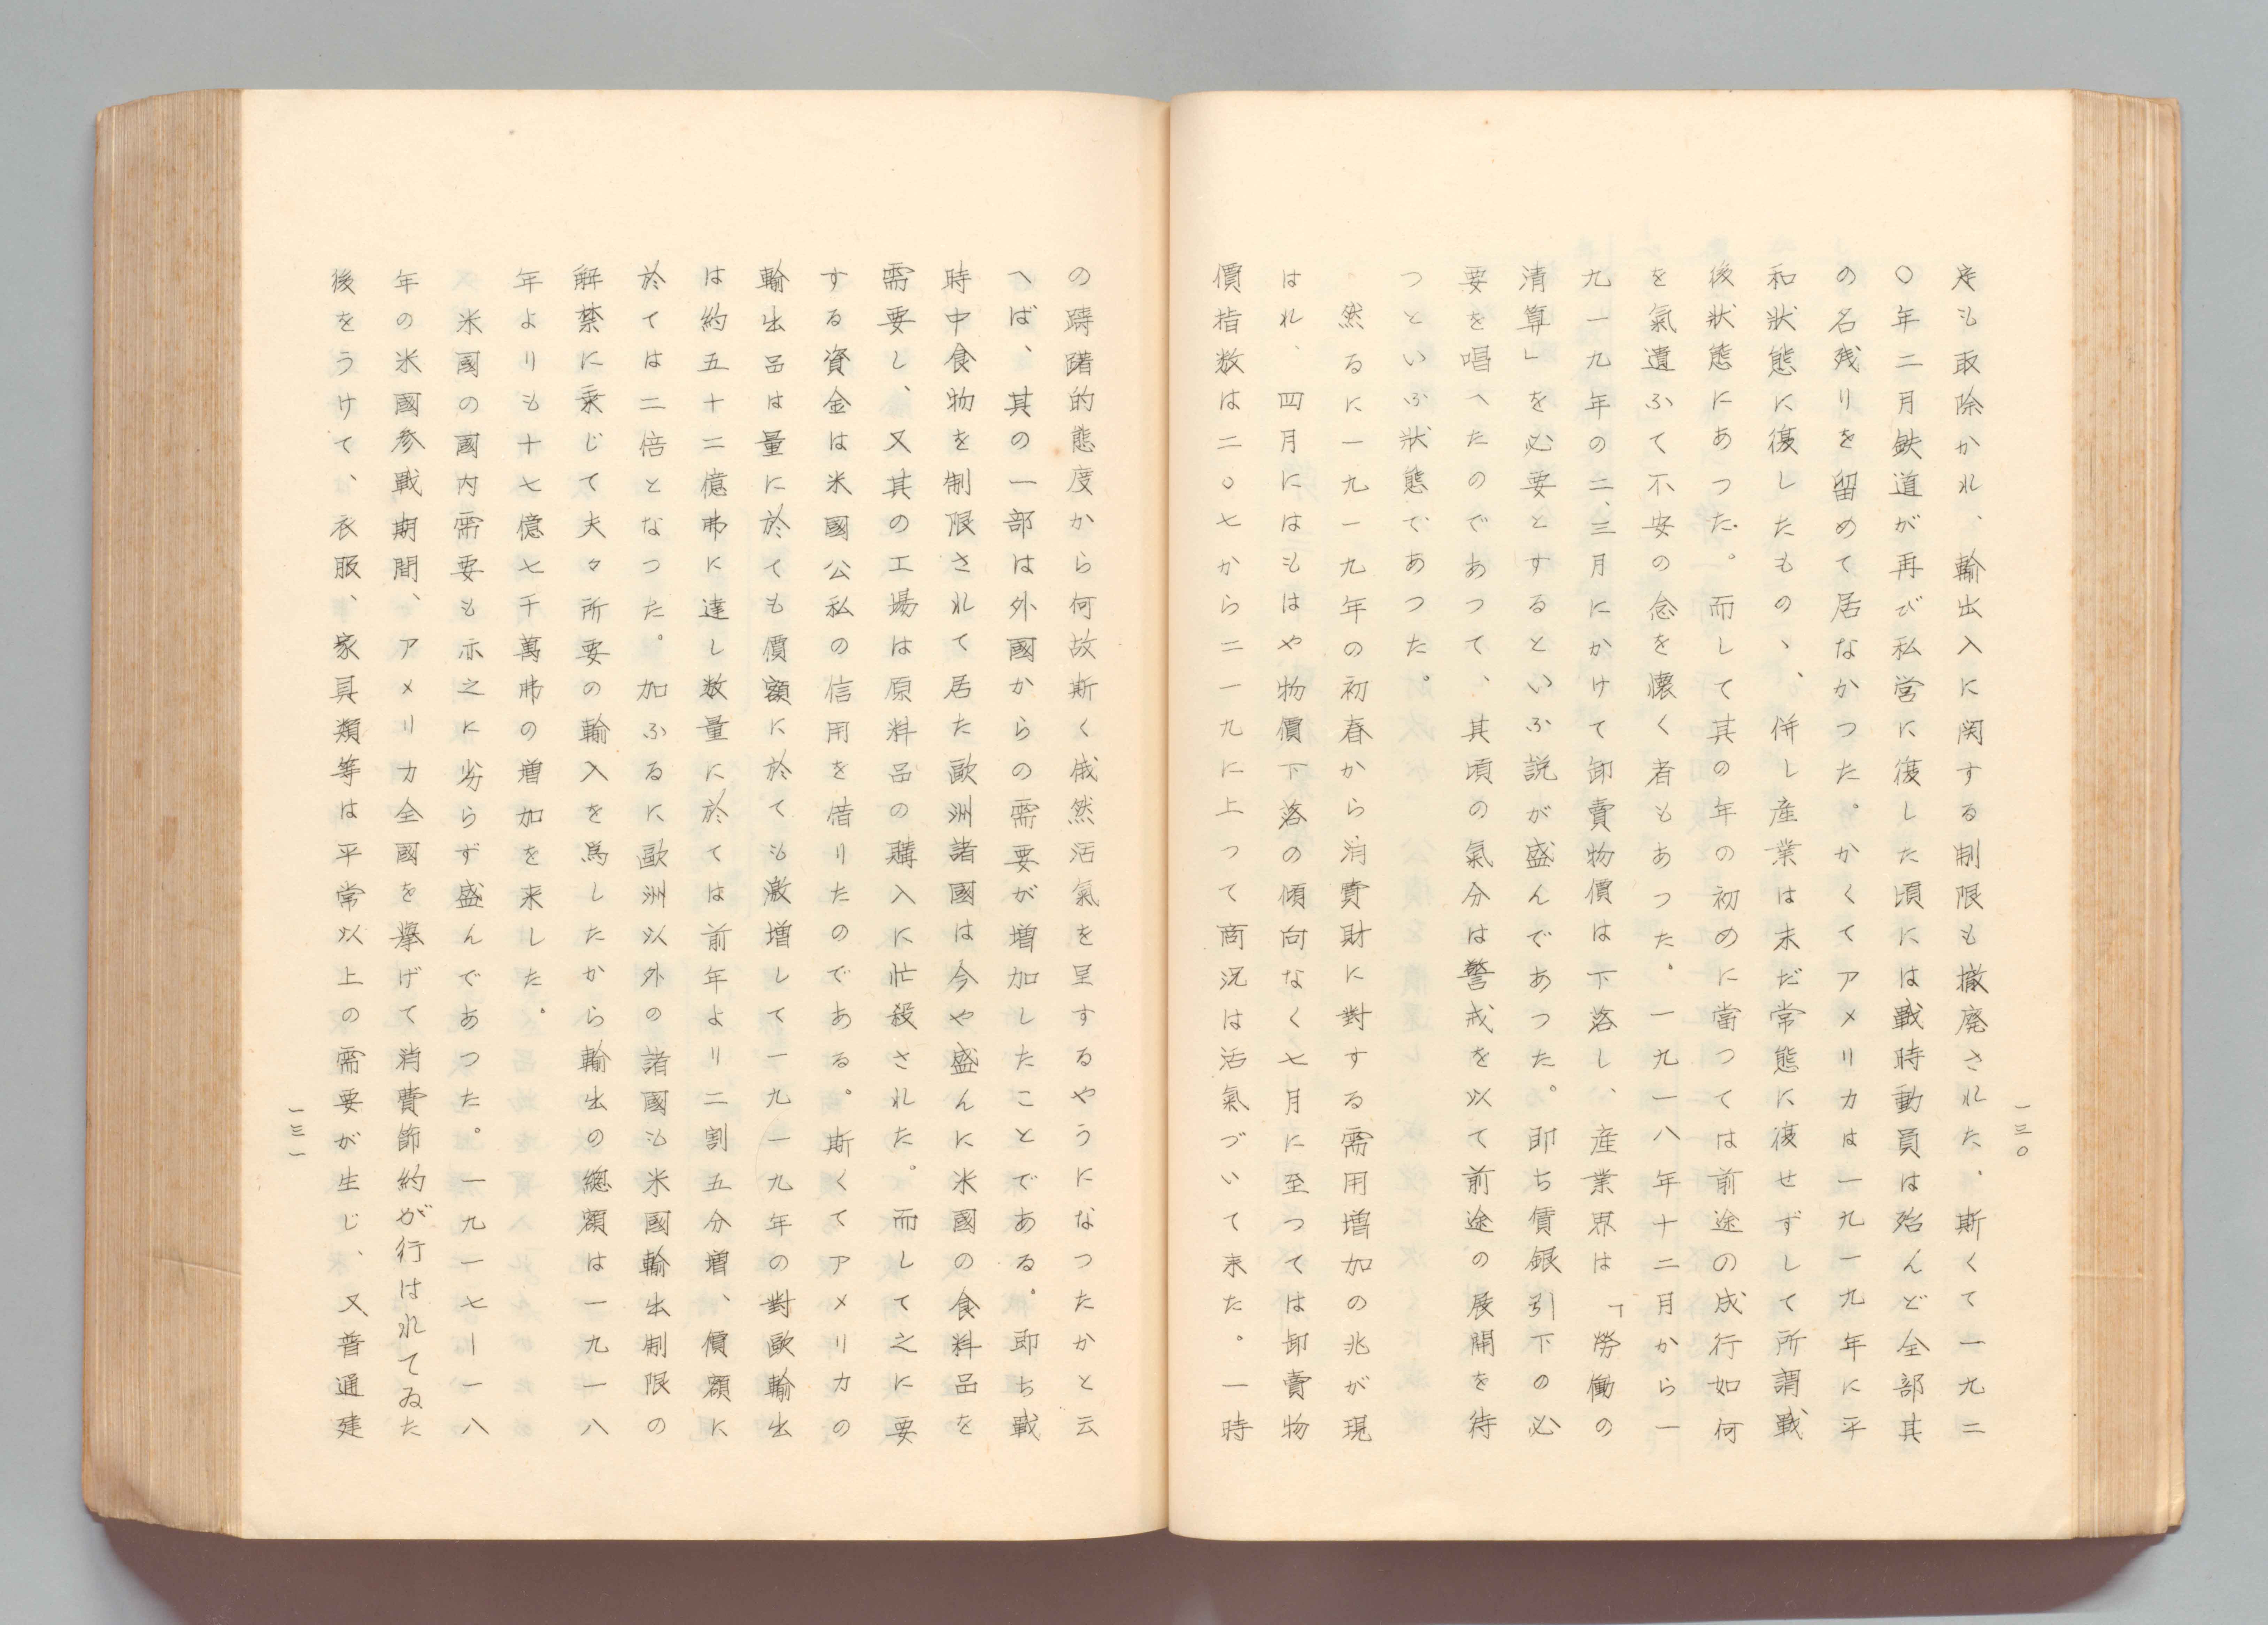 一三〇
定も取除かれ、輸出入に関する制限も撤廃された、斯くて一九二
〇年二月鉄道が再び私営に復した頃には戰時動員は殆んど全部其
の名残りを留めて居なかつた。かくてアメリカは一九一九年に平
和狀態に復したものゝ、併し産業は未だ常態に復せずして所謂戰
後狀態にあつた。而して其の年の初めに當つては前途の成行如何
を氣遣ふて不安の念を懐く者もあつた。一九一八年十二月から一
九一九年の二、三月にかけて卸賣物價は下落し、産業界は「勞働の
清算」を必要とするといふ説が盛んであつた。即ち賃銀引下の必
要を唱へたのであつて、其頃の氣分は警戒を以て前途の展開を待
つといふ狀態であつた。
然るに一九一九年の初春から消費財に對する需用増加の兆が現
はれ、四月にはもはや物價下落の傾向なく七月に至つては卸賣物
價指数は二〇七から二一九に上つて商況は活氣づいて来た。一時
の躊躇的態度から何故斯く俄然活氣を呈するやうになつたかと云
へば、其の一部は外國からの需要が増加したことである。即ち戰
時中食物を制限されて居た歐洲諸國は今や盛んに米國の食料品を
需要し、又其の工場は原料品の購入に忙殺された。而して之に要
する資金は米國公私の信用を借りたのである。斯くてアメリカの
輸出品は量に於ても價額に於ても激増して一九一九年の對歐輸出
は約五十二億弗に達し数量に於ては前年より二割五分増、價額に
於ては二倍となつた。加ふるに歐洲以外の諸國も米國輸出制限の
解禁に乗じて夫々所要の輸入を爲したから輸出の總額は一九一八
年よりも十七億七千萬弗の増加を来した。
米國の國内需要も亦之に劣らず盛んであつた。一九一七ー一八
年の米國参戰期間、アメリカ全國を擧げて消費節約が行はれてゐた
後をうけて、衣服、家具類等は平常以上の需要が生じ、又普通建
一三一